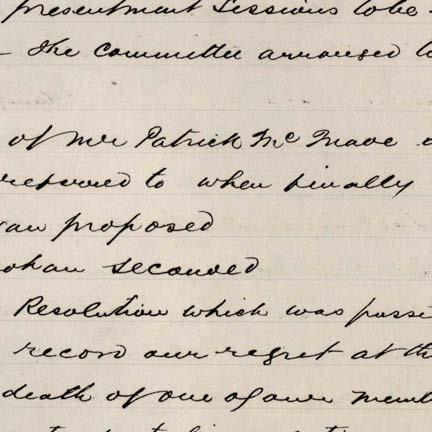 presentment Sessions to be
- The Committee arranged to
of Mr Patrick Mc
referred to when finally
proposed
seconded
Resolution which was passe
record our regret at th
death of one of our memb